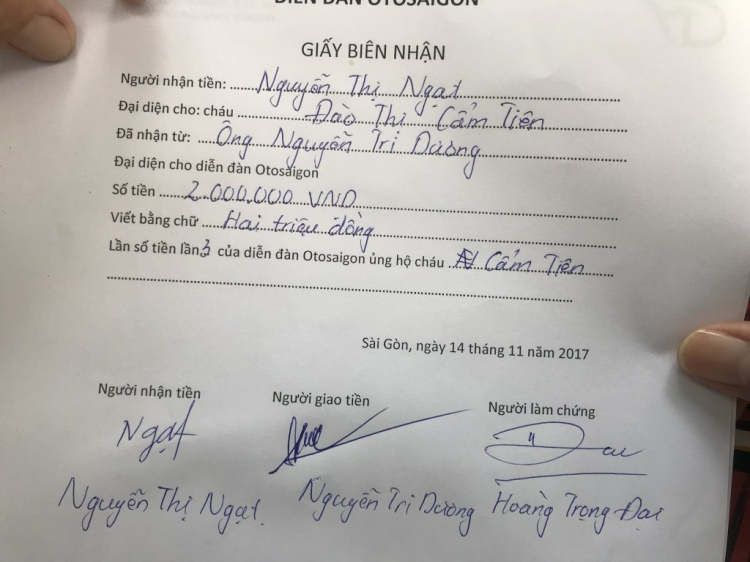 DIỄN ĐÀN OTOSAIGON
GIẤY BIÊN NHẬN
Người nhận tiền: Nguyễn Thị Ngạt
Đại diện cho: cháu Đào Thị Cẩm Tiên
Đã nhận từ: Ông Nguyễn Tri Dương
Đại diện cho diễn đàn Otosaigon
Số tiền 2.000.000 VND
Viết bằng chữ Hai triệu đồng
Lần số tiền lần 3 của diễn đàn Otosaigon ủng hộ cháu Cẩm Tiên
Sài Gòn, ngày 14 tháng 11 năm 2017
Người nhận tiền Người giao tiền Người làm chứng
Ngạt
Nguyễn Thị Ngạt Nguyễn Tri Dương Hoàng Trọng Đại